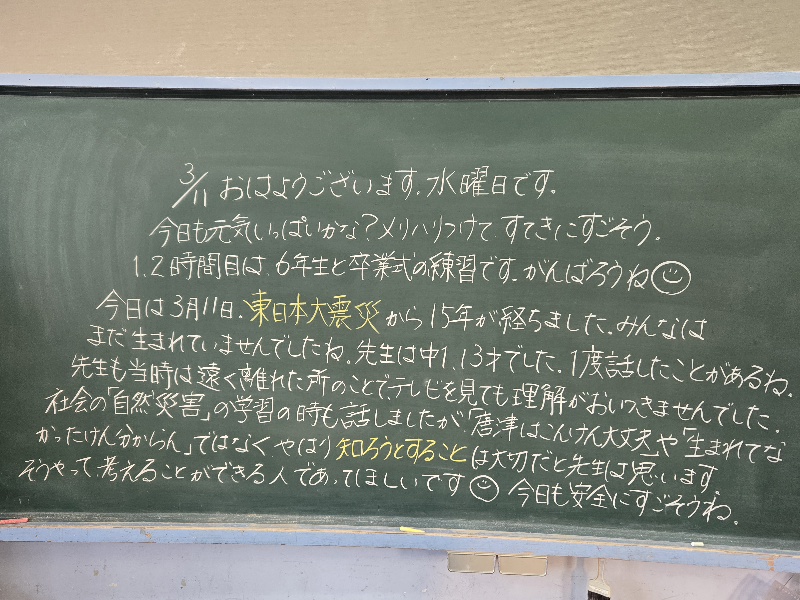 3/11 おはようございます。水曜日です。
今日も元気いっぱいかな?メリハリつけて、すてきにすごそう。
1、2時間目は、6年生と卒業式の練習です。がんばろうね
今日は3月11日。東日本大震災から15年が経ちました。みんなは
まだ生まれていませんでしたね。先生は中1、13才でした。1度話したことがあるね。
先生も当時は遠く離れた所のことで、テレビを見ても理解がおいつきませんでした。
社会の「自然災害」の学習の時も話しましたが「唐津はこんけん大丈夫」や「生まれてな
かったけん分からん」ではなくやはり知ろうとすることは大切だと先生は思います。
そうやって考えることができる人であってほしいです 今日も安全にすごそうね。